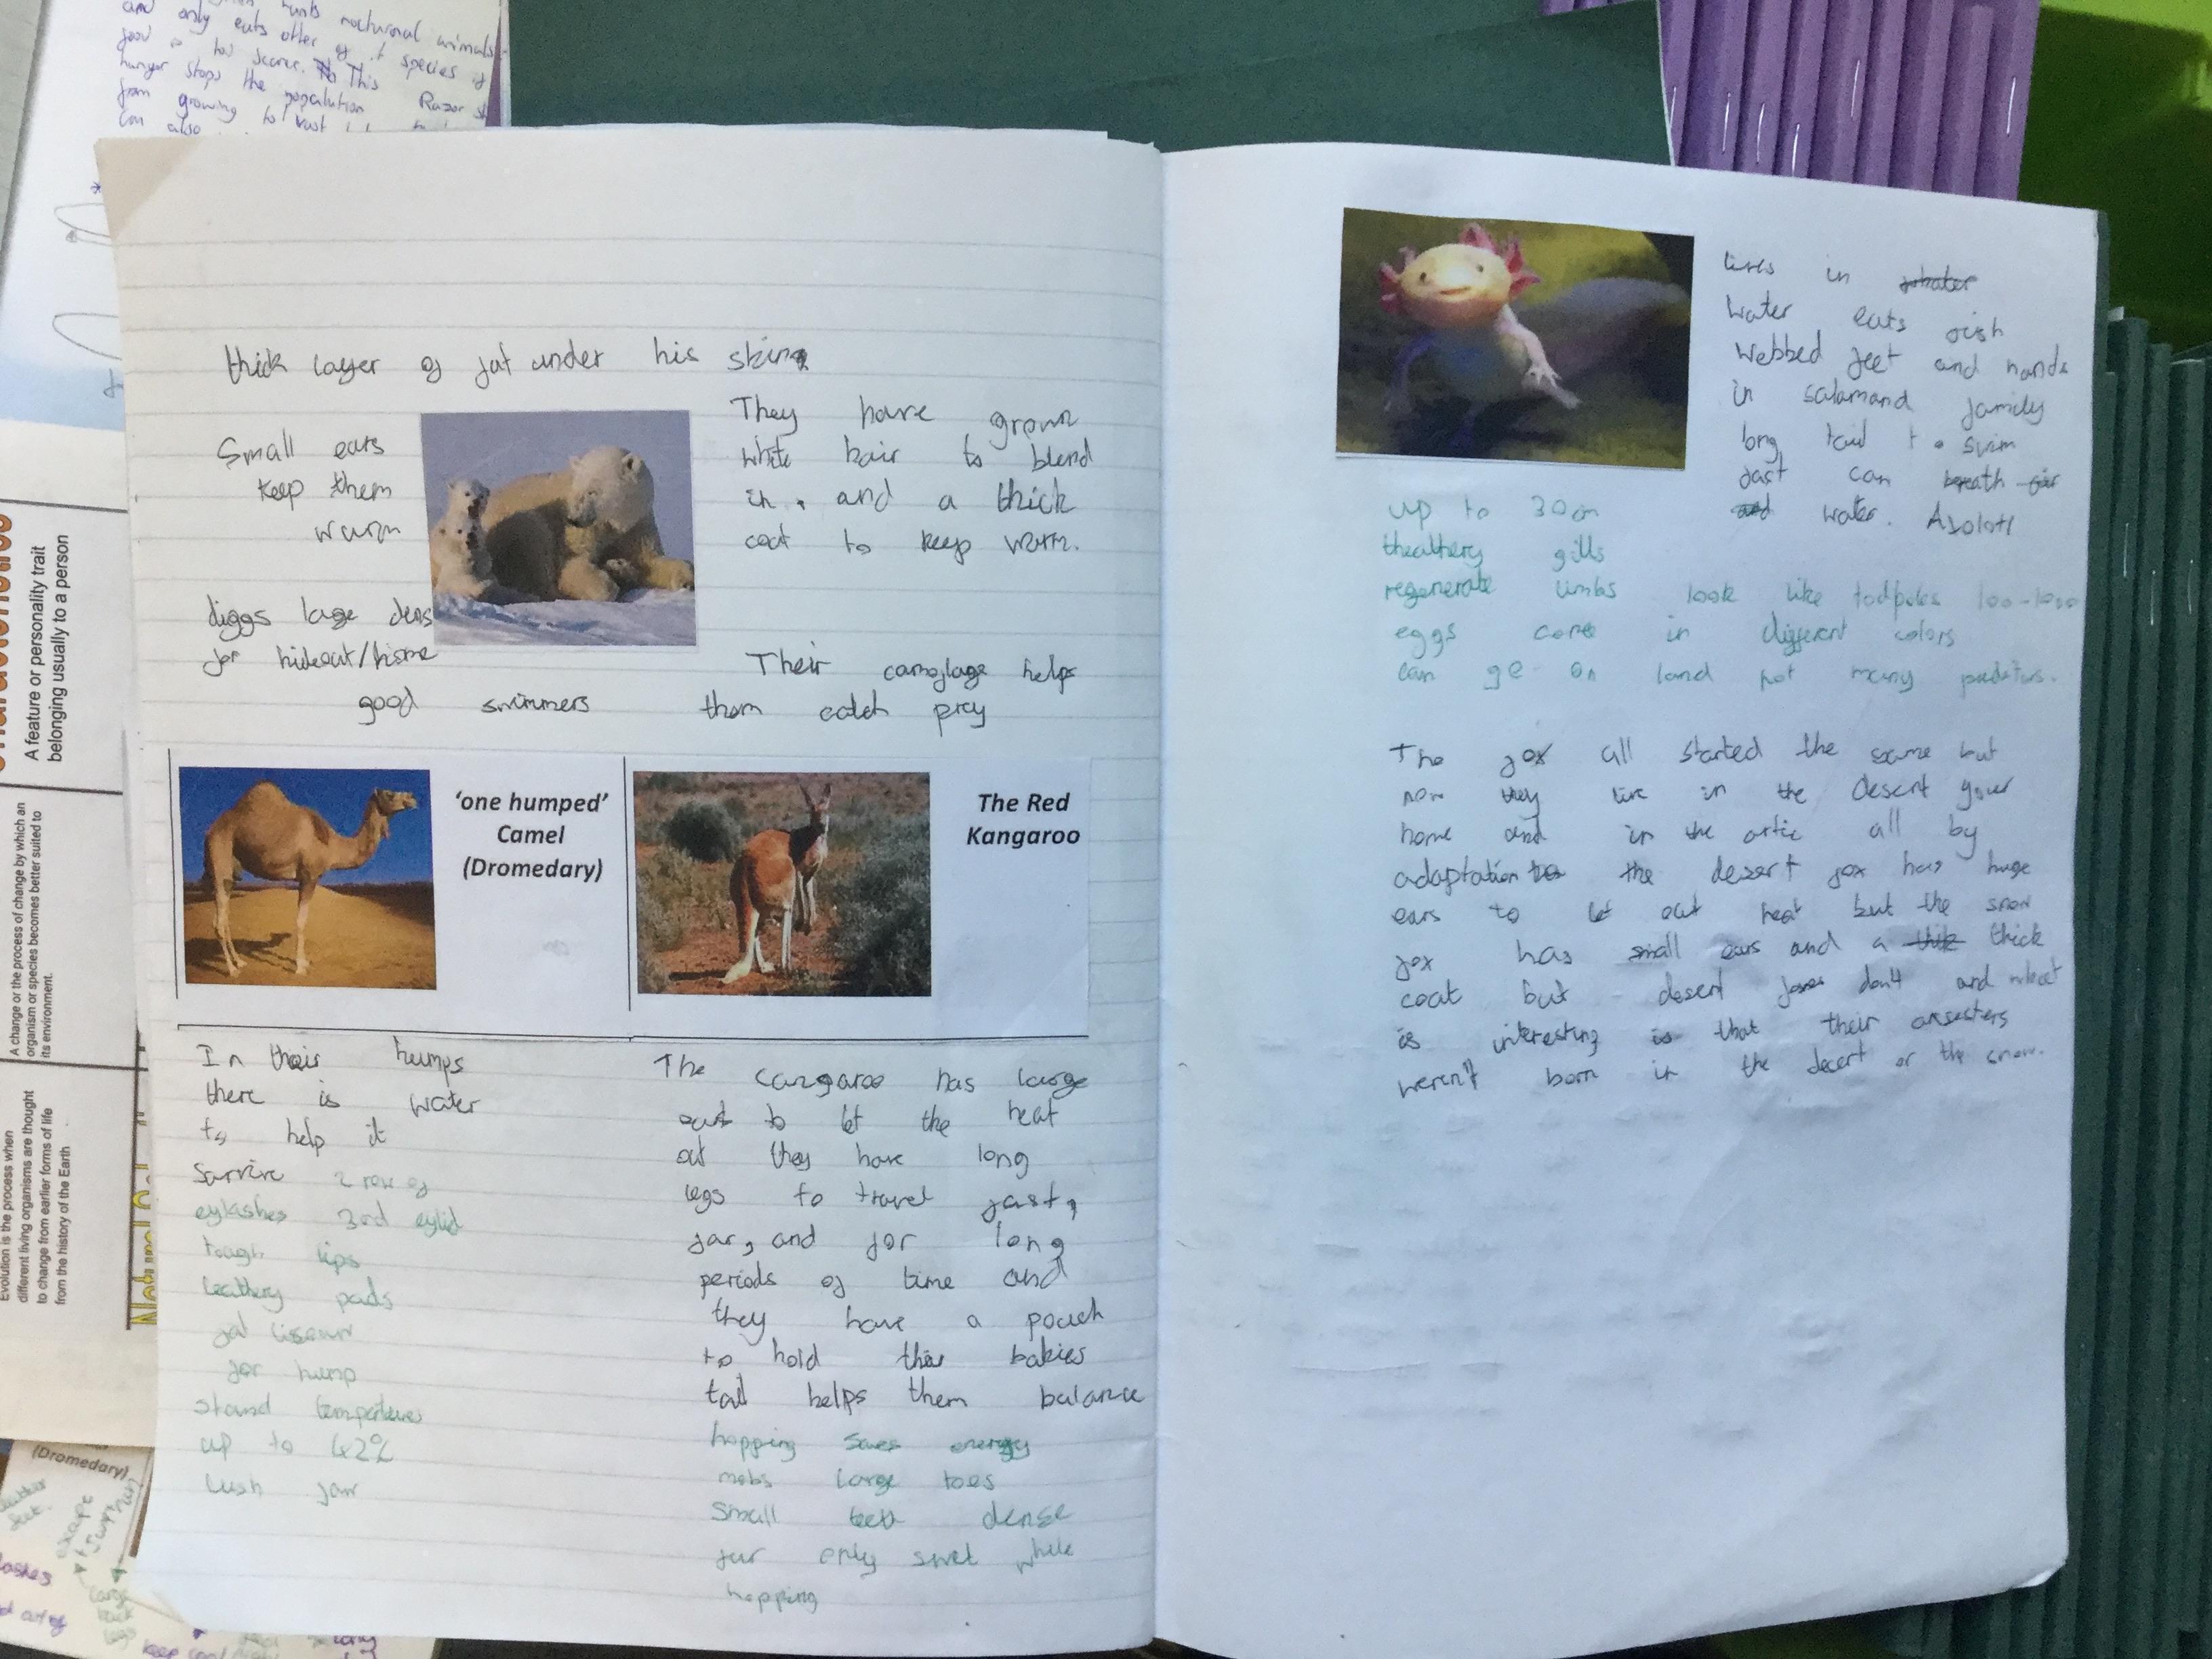 and only eats other of it species if
food is to scarce. This
hunger stops the population Razor
from growing to vast
can also
thick layer of fat under his skin
Small ears
keep them
warm
They have grown
white hair to blend
in, and a thick
coat to keep warm.
diggs lage dens
for hideout/home
good swimmers
Their camoflage helps
them catch prey
'one humped'
Camel
(Dromedary)
The Red
Kangaroo
In their humps
there is water
to help it
survive 2 row of
eylashes 3rd eylid
tough lips
leathery pads
fat
for hump
stand
up to 42%
lush
The cangaroo has large
ears to let the heat
out they have long
legs to travel fast,
far, and for long
periods of time and
they have a pouch
to hold their babies
tail helps them balance
hopping saves energy
mobs large toes
small teeth dense
fur only swet while
hopping
lives in
water eats fish
webbed feet and hands
in salamand family
long tail to swim
fast can breath
water. Axolotl
up to 30cm
theathery gills
regenerate limbs look like tadpoles 100-1000
eggs come in different colors
can go on land not many predetors.
The fox all started the same but
now they live in the desert your
home and in the artic all by
adaptation the desert fox has huge
ears to let out heat but the snow
fox has small ears and a thick
coat but desert foxes don't and what
is interesting is that their ansesters
weren't born in the desert or the snow.
A feature or personality trait
belonging usually to a person
A change or the process of change by which an
organism or species becomes better suited to
its environment.
Evolution is the process when
different living organisms are thought
to change from earlier forms of life
from the history of the Earth
(Dromedary)
escape
large
back
legs
keep cool